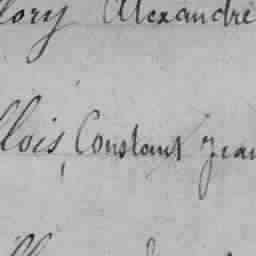 lory Alexandre
llois, Constant Jean